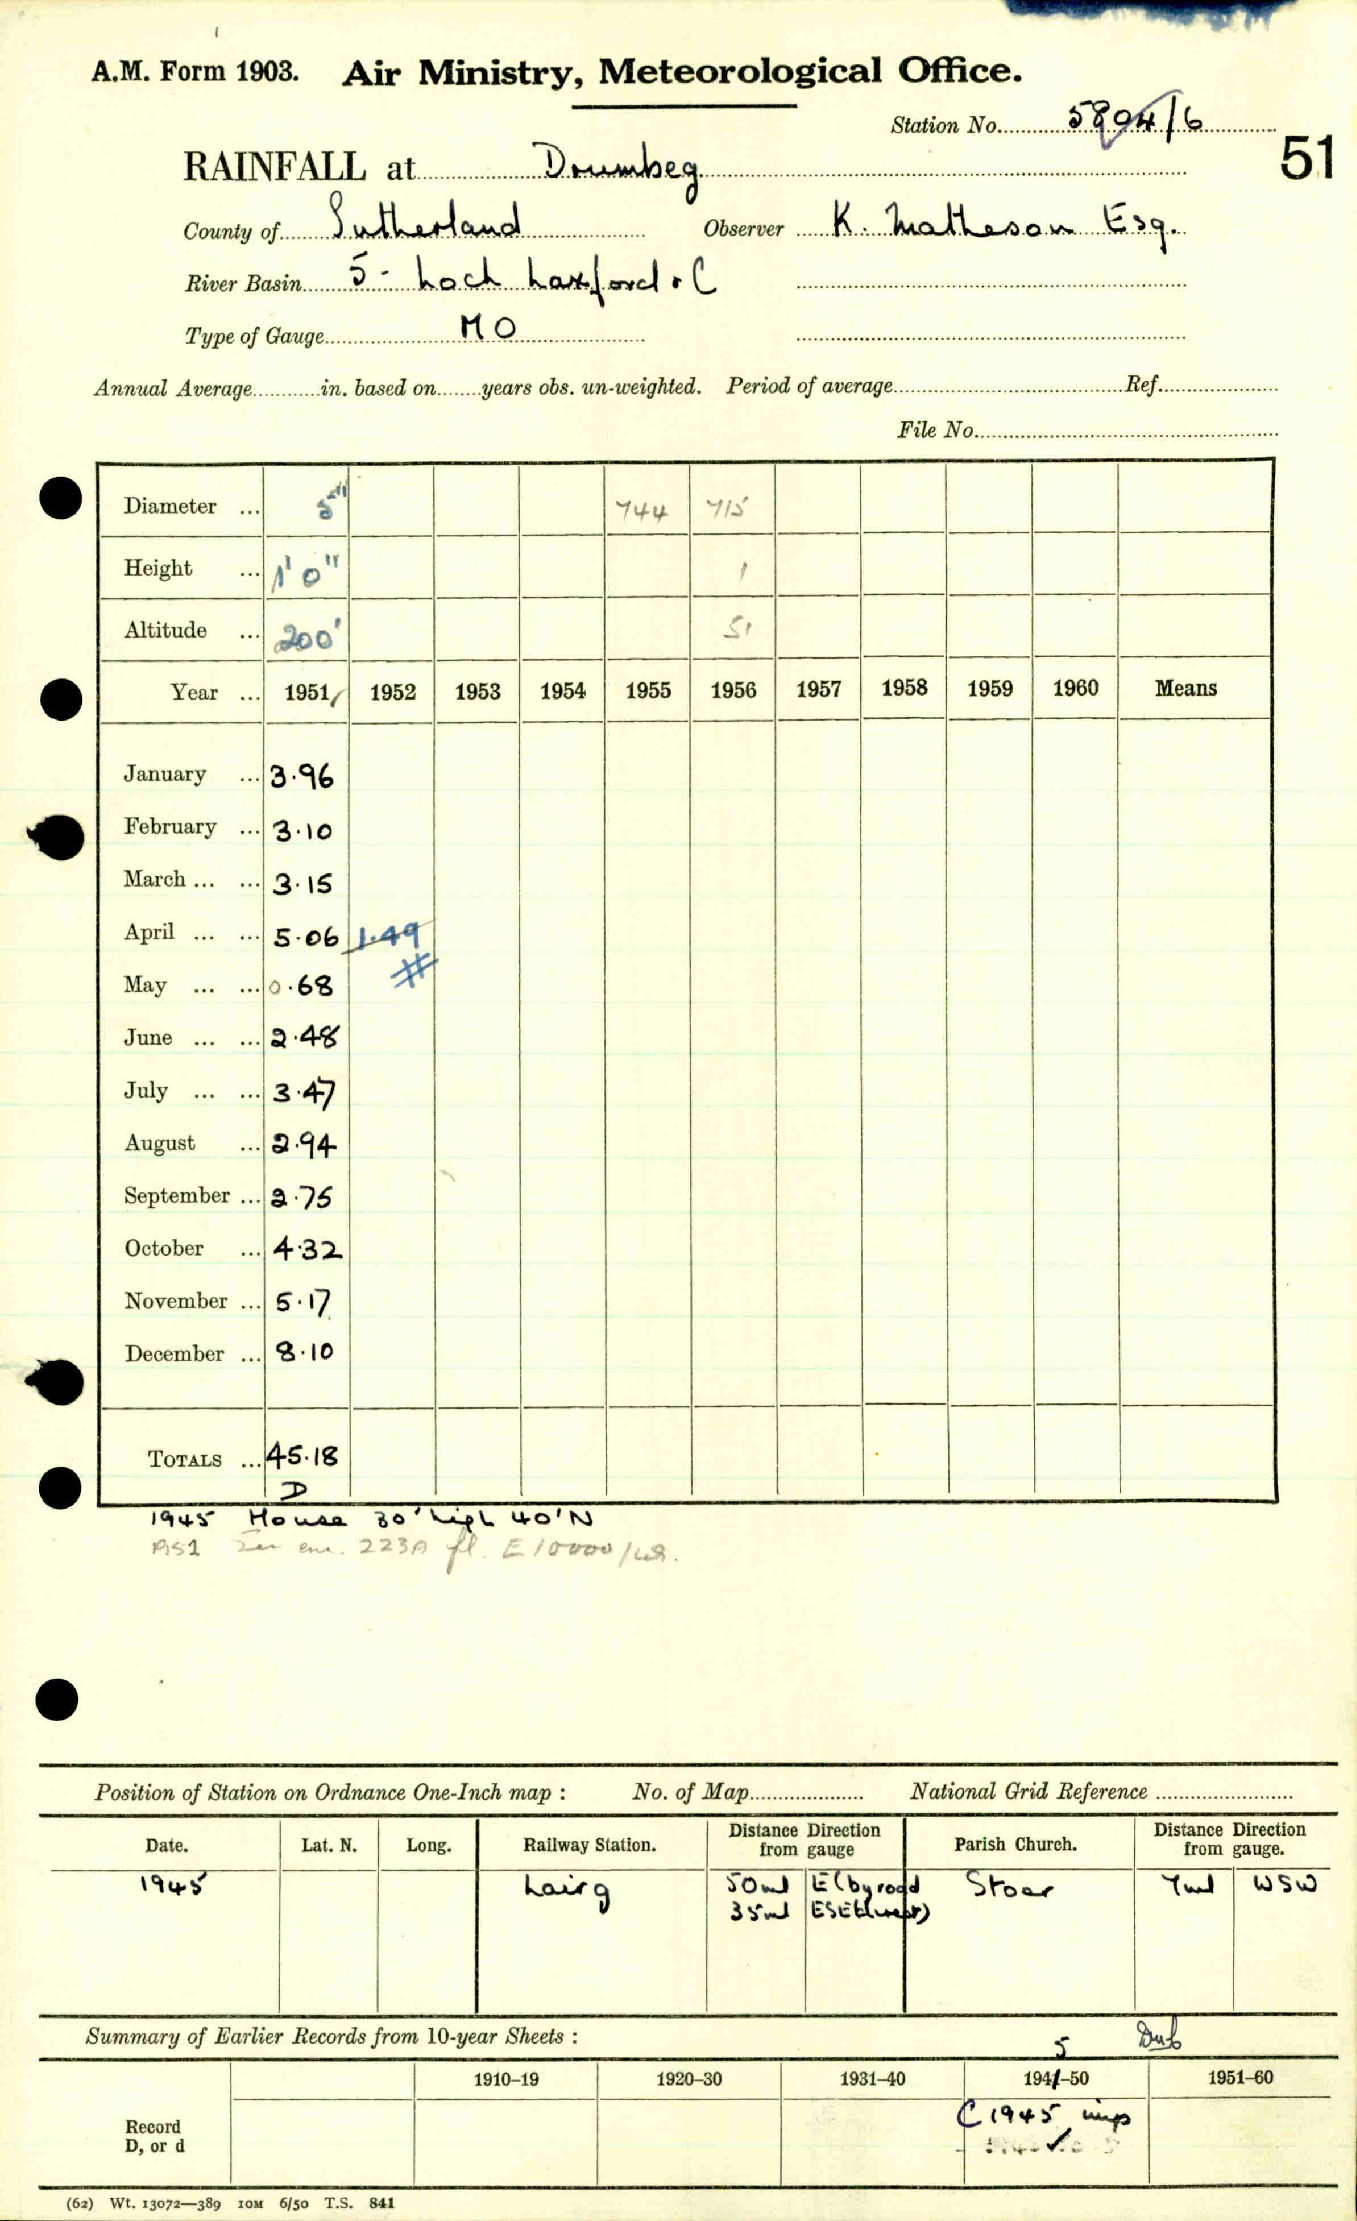 A.M. Form 1903. Air Ministry, Meteorological Office.
Station No. 5804/6
51
RAINFALL at Drumbeg
County of Sutherland Observer K. Matheson Esq.
River Basin 5- Loch Laxford & C
Type of Gauge MO
Annual Average in. based on years obs. un-weighted. Period of average Ref.
File No.
Diameter ... 5" 744 715
Height ... 1' 0" 1
Altitude ... 200' 51
Year ... 1951 1952 1953 1954 1955 1956 1957 1958 1959 1960 Means
January ... 3.96
February ... 3.10
March ... ... 3.15
April ... ... 5.06 1.49
May ... ... 0.68 #
June ... ... 2.48
July ... ... 3.47
August ... 2.94
September ... 2.75
October ... 4.32
November ... 5.17
December ... 8.10
TOTALS ... 45.18
D
1945 House 30' high 40'N
1951 223A fl. E/10000/48.
Position of Station on Ordnance One-Inch map : No. of Map National Grid Reference
Date. Lat. N. Long. Railway Station. Distance from Direction gauge Parish Church. Distance from Direction gauge.
1945 Lairg 50ml E (by road Stoer 7ml WSW
35ml ESE
Summary of Earlier Records from 10-year Sheets :
5
1910–19 1920–30 1931–40 1941–50 1951–60
Record
D, or d
C 1945 imp
(62) Wt. 13072—389 10M 6/50 T.S. 841